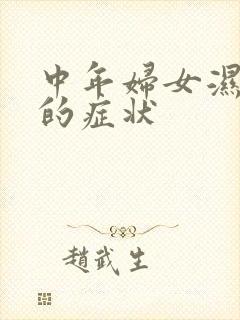 中年婦女濕
的症状
趙武生